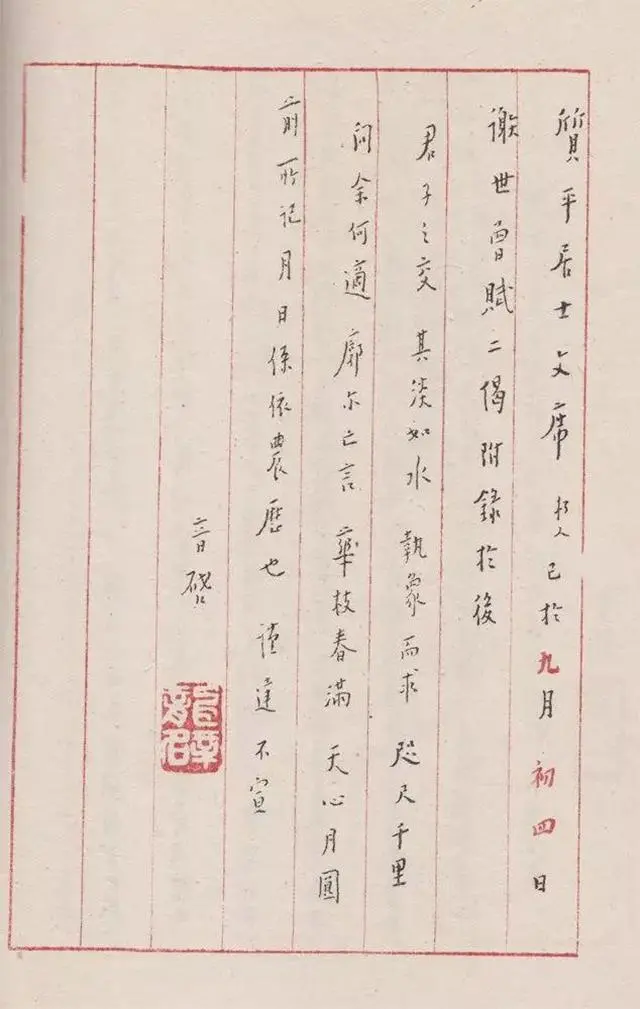 質平居士文席 朽人已於九月初四日
謝世曾賦二偈附錄於後
君子之交 其淡如水 執象而求 咫尺千里
問余何適 廓尓亡言 華枝春滿 天心月圓
前所記月日係依農歷也 謹達不宣
音啓